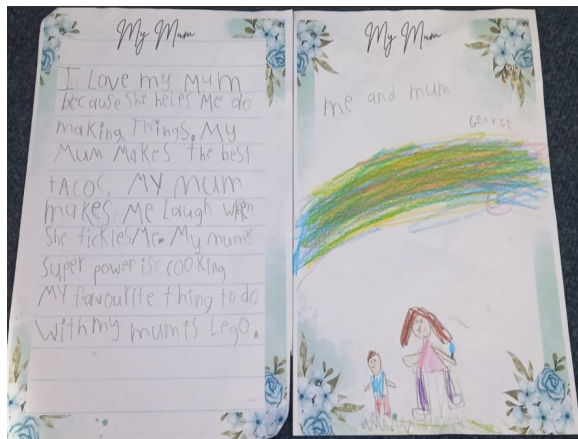 My Mum
I Love my Mum
because she heles Me do
making Things. My
Mum Makes the best
tACOS. MY mum
makes Me Laugh when
She tickles Me. My mums
super power is cooking
MY favourite thing to do
With my mum is Lego.
My Mum
me and mum
GEORGE